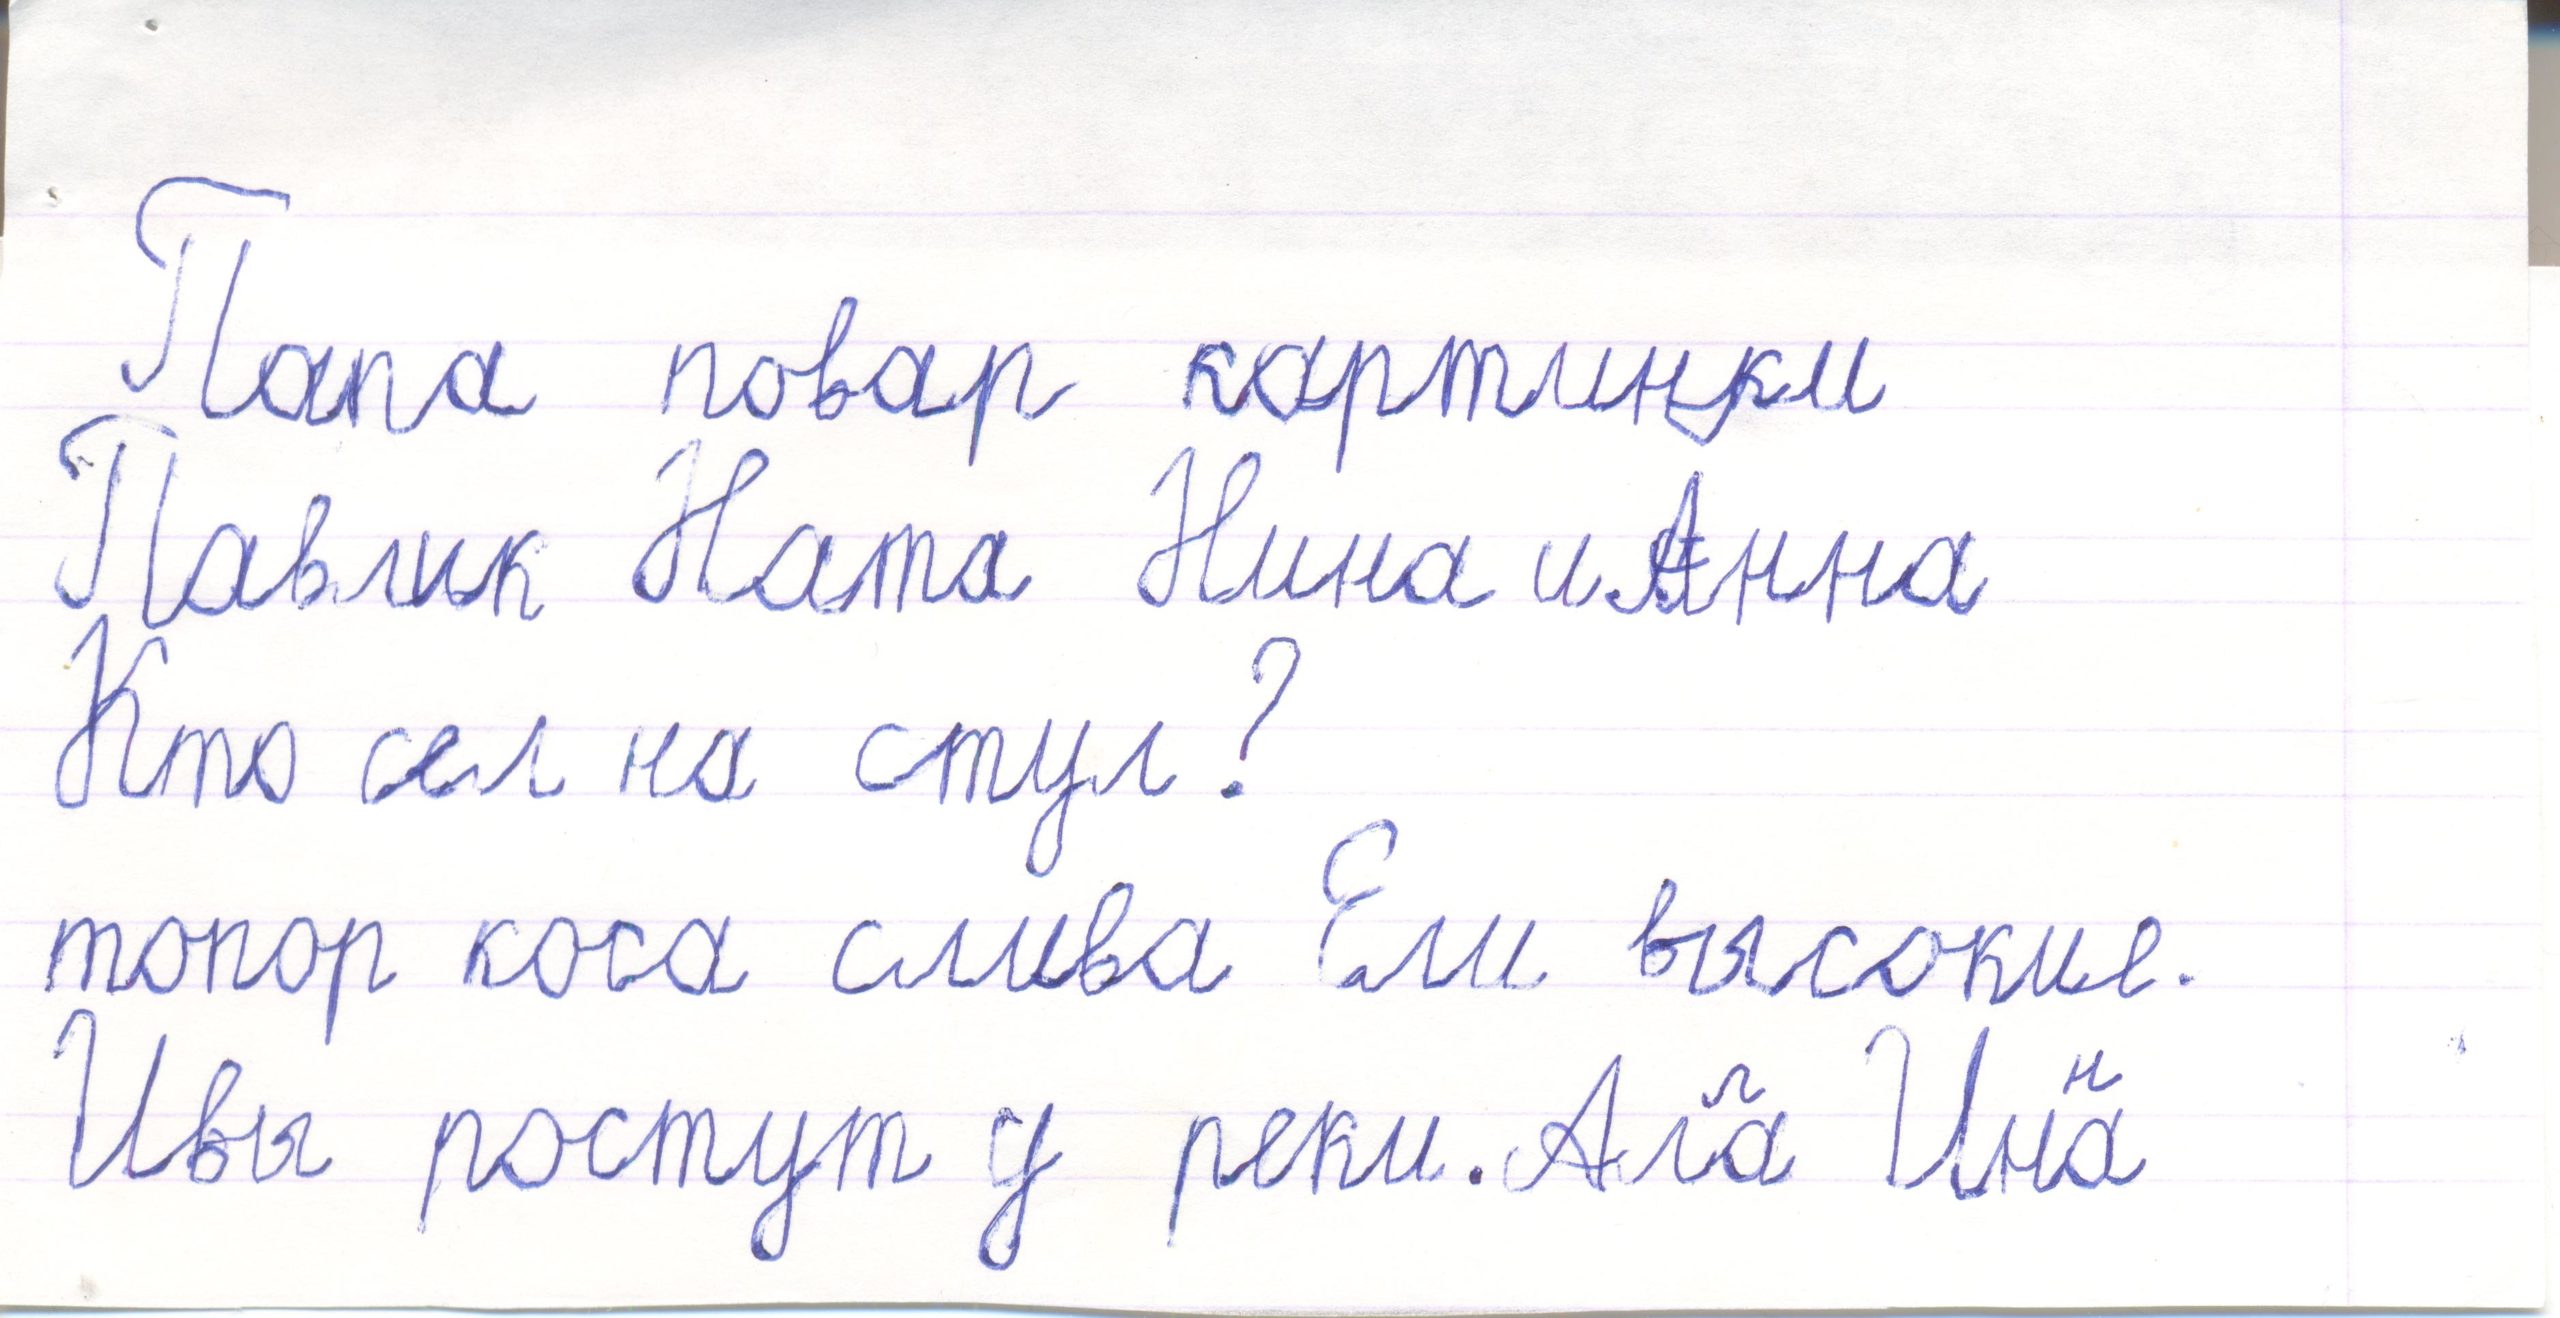 Папа повар картинки
Павлик Ната Нина и Анна
Кто сел на стул?
топор коса слива Ели высокие.
Ивы ростут у реки. Алла Инна